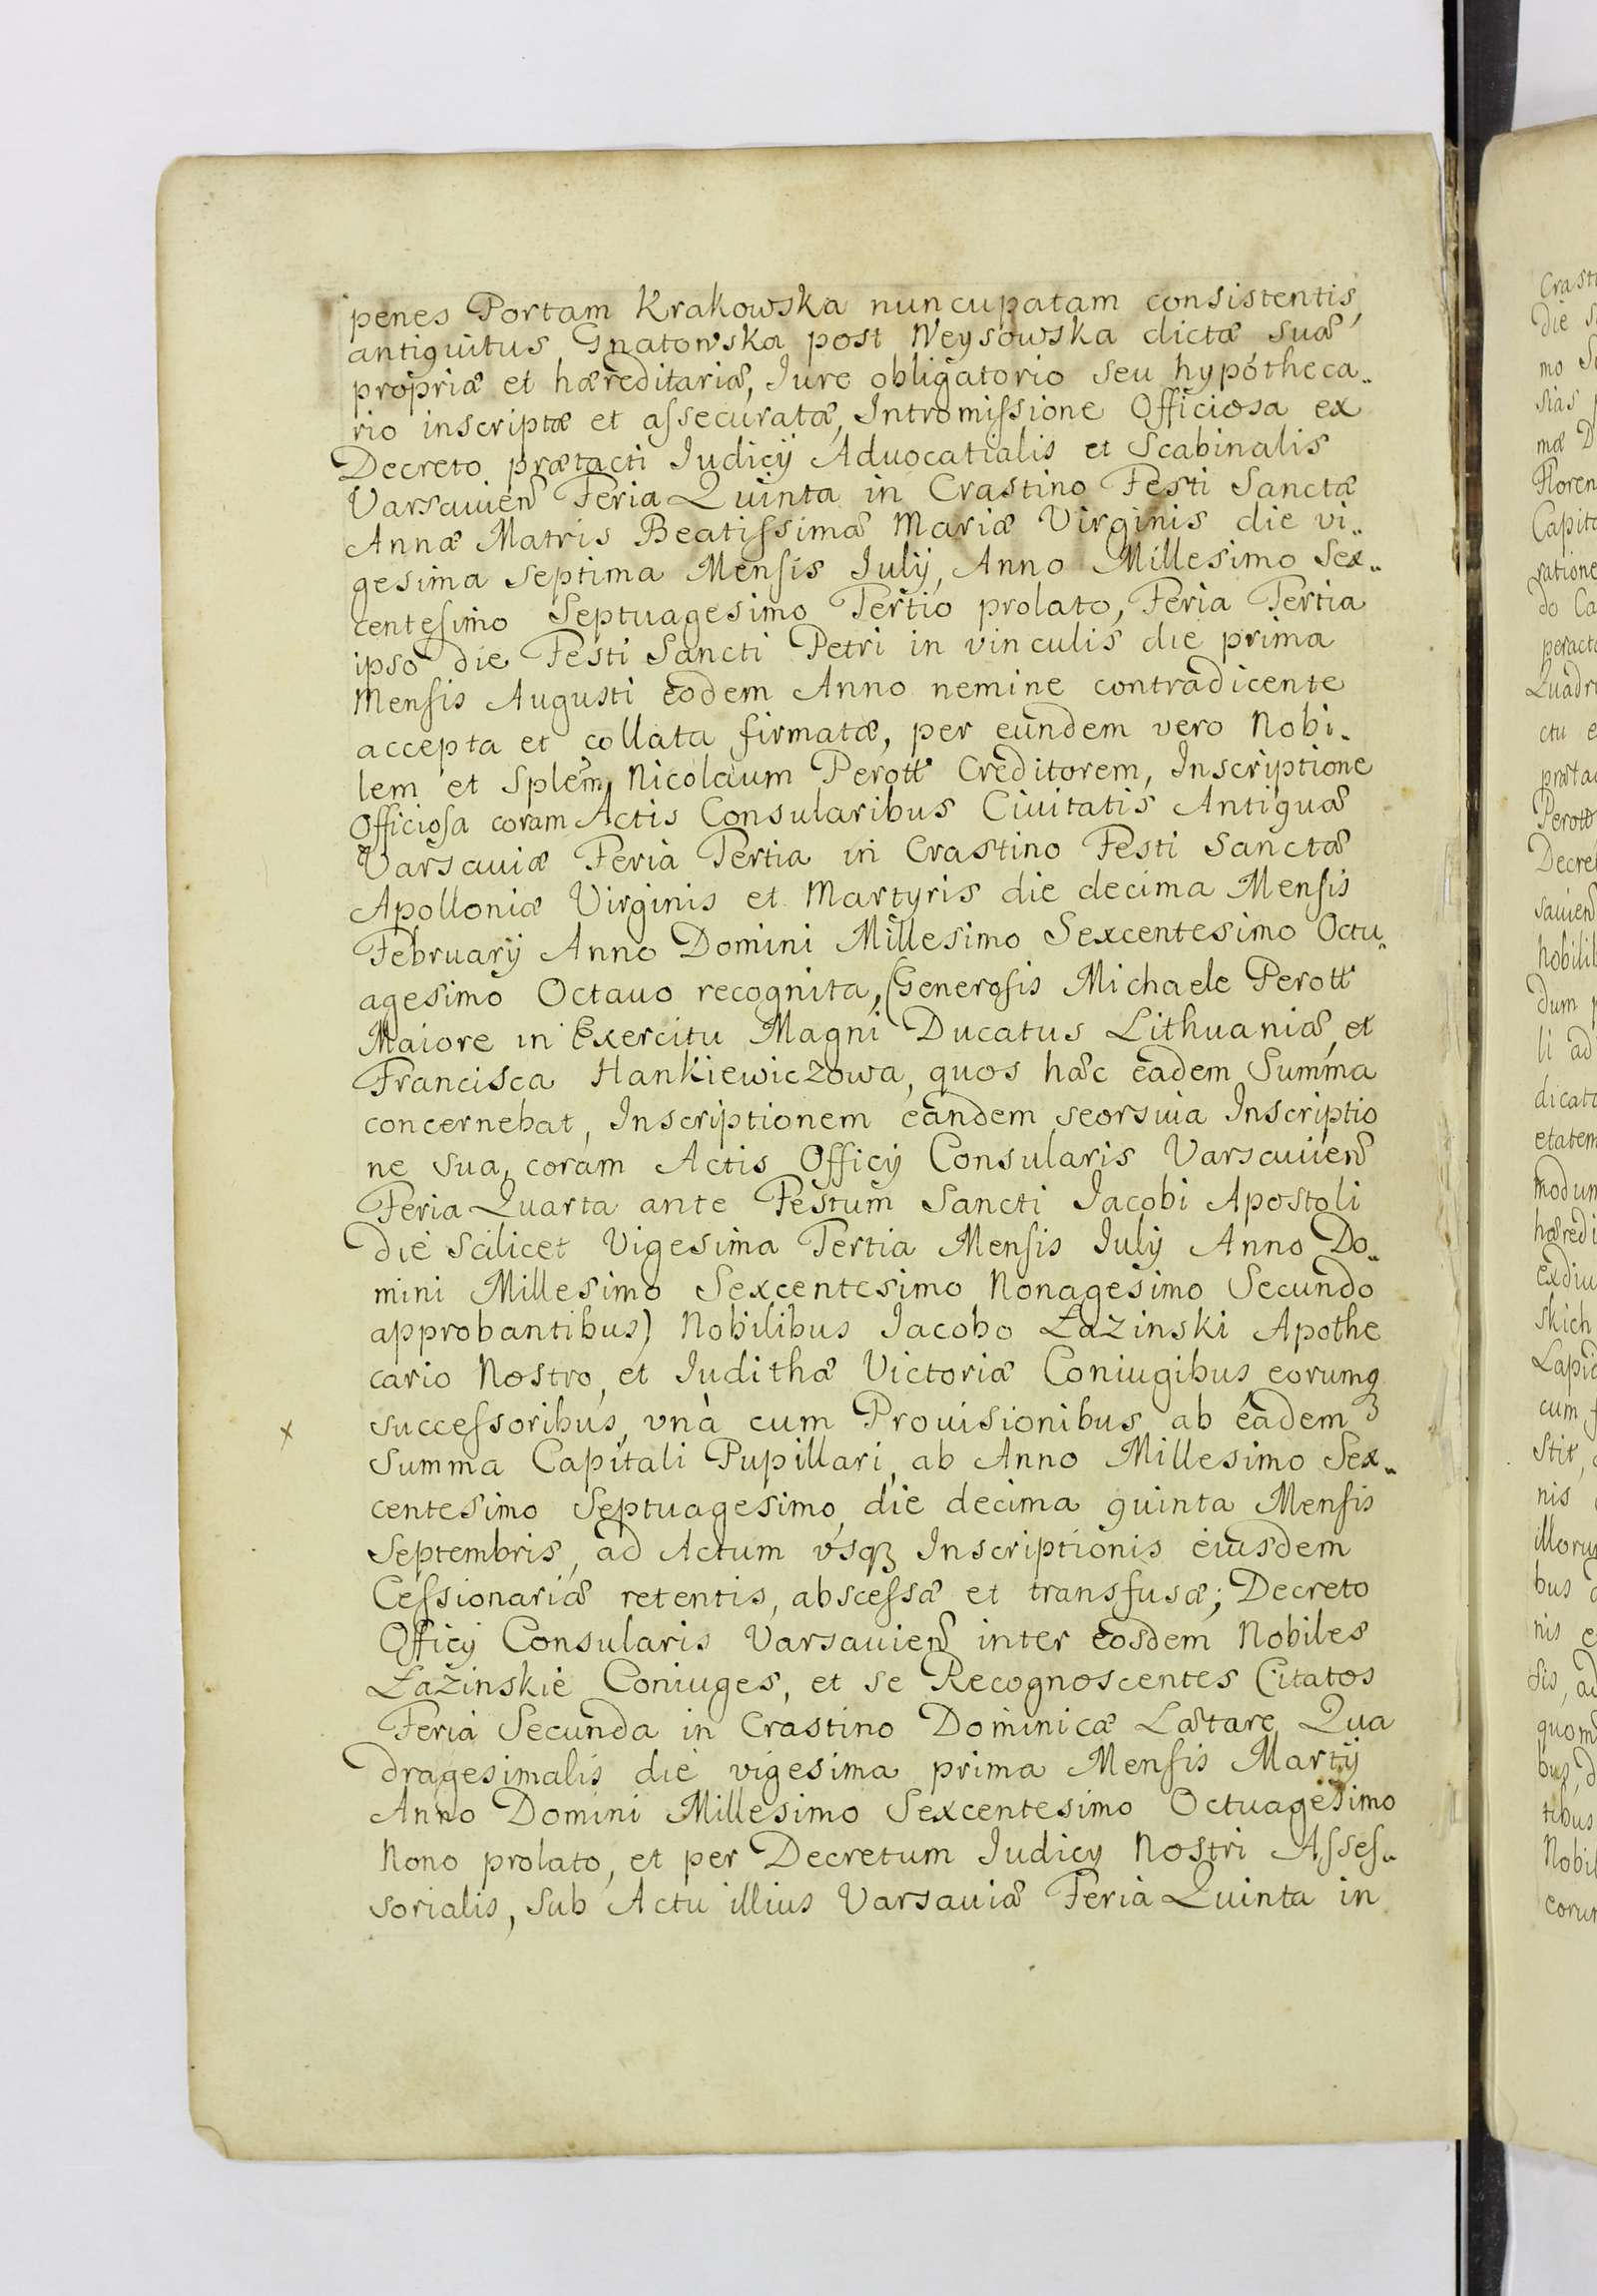 penes Portam Krakowska nuncupatam consistentis,
antiquitus Gnatowska post Weysowska dictæ suæ
propriæ et hæreditariæ, Iure obligatorio seu hypotheca..
rio inscriptæ et aſsecuratæ, Intromiſsione Officiosa ex
Decreto prætacti Iudicÿ Aduocatialis et Scabinalis
Varsauien Feria Quinta in Crastino Festi Sanctæ
Annæ Matris Beatiſsimæ Mariæ Virginis die vi..
gesima septima Menſis Iulÿ, Anno Millesimo Sex..
centeſimo Septuagesimo Tertio prolato, Feria Tertia
ipso die Festi Sancti Petri in vinculis die prima
Menſis Augusti eodem Anno nemine contradicente
accepta et collata firmatæ, per eundem vero Nobi..
lem et Splem Nicolaum Perott Creditorem, Inscriptione
Officioſa coram Actis Consularibus Ciuitatis Antiquæ
Varsauiæ Feria Tertia in Crastino Festi Sanctæ
Apolloniæ Virginis et Martyris die decima Menſis
Februarÿ Anno Domini Millesimo Sexcentesimo Octu..
agesimo Octauo recognita, (Generoſis Michaele Perott
Maiore in Exercitu Magni Ducatus Lithuaniæ, et
Francisca Hankiewiczowa, quos hæc eadem Summa
concernebat, Inscriptionem eandem seorsiua Inscriptio
ne sua, coram Actis Officÿ Consularis Varsauien
Feria Quarta ante Festum Sancti Iacobi Apostoli
die scilicet Vigesima Tertia Menſis Iulÿ Anno Do..
mini Millesimo Sexcentesimo Nonagesimo Secundo
approbantibus) Nobilibus Iacobo Łazinski Apothe
cario Nostro, et Iudithæ Victoriæ Coniugibus eorumq
x succeſsoribus, vnà cum Prouisionibus ab eadem
Summa Capitali Pupillari, ab Anno Millesimo Sex..
centesimo Septuagesimo, die decima quinta Menſis
Septembris, ad Actum vsqꝫ Inscriptionis eiusdem
Ceſsionariæ retentis, absceſsæ et transfusæ; Decreto
Officÿ Consularis Varsauien inter eosdem Nobiles
Łazinskie Coniuges, et se Recognoscentes Citatos
Feria Secunda in Crastino Dominicæ Lætare Qua
dragesimalis die vigesima prima Menſis Martÿ
Anno Domini Millesimo Sexcentesimo Octuagesimo
Nono prolato, et per Decretum Iudicÿ Nostri Aſseſ..
sorialis, sub Actu illius Varsauiæ Feria Quinta in
Crast
die s
mo S
sias
mæ D
Floren
Capita
ratione
do Ca
peract
Quadr
ctu e
præta
Perott
Decre
sauien
Nobilib
dum
li ad
dicat
etatem
modum
hæredi
exdiu
skich
Lapid
cum
stit,
nis
illorum
bus
nis e
sis, ad
quom
bus, d
tibus
Nobil
corun